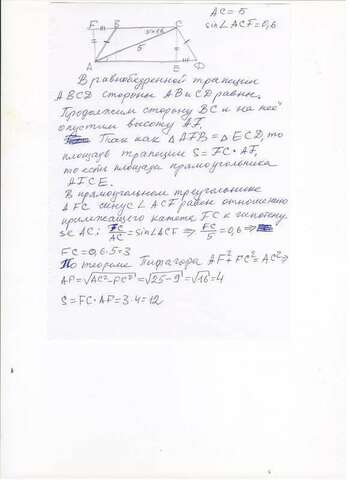 AC=5
sin∠ACF=0,6
F m B C
5
A E m D
В равнобедренной трапеции
ABCD стороны AB и CD равны.
Продолжим сторону BC и на неё
опустим высоту AF.
Так как △AFB=△ECD, то
площадь трапеции S=FC·AF,
то есть площадь прямоугольника
AFCE.
В прямоугольном треугольнике
AFC синус ∠ACF равен отношению
прилежащего катета FC к гипотену-
зе AC; FC/AC=sin∠ACF ⇒ FC/5=0,6 ⇒
FC=0,6·5=3
По теореме Пифагора AF²+FC²=AC² ⇒
AF=√AC²-FC²=√25-9=√16=4
S=FC·AF=3·4=12